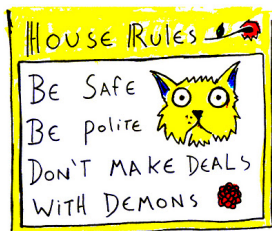 House Rules
Be Safe
Be polite
Don't make deals
with Demons